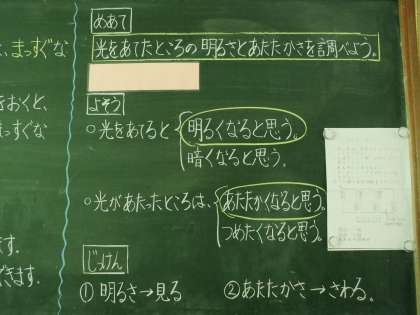 と、まっすぐな
をおくと、
まっすぐな
ます。
できます.
めあて
光をあてたところの明るさとあたたかさを調べよう。
よそう
○光をあてると
明るくなると思う。
暗くなると思う.
○光があたったところは、
あたたかくなると思う。
つめたくなると思う。
じっけん
① 明るさ→見る
②あたたかさ→さわる。